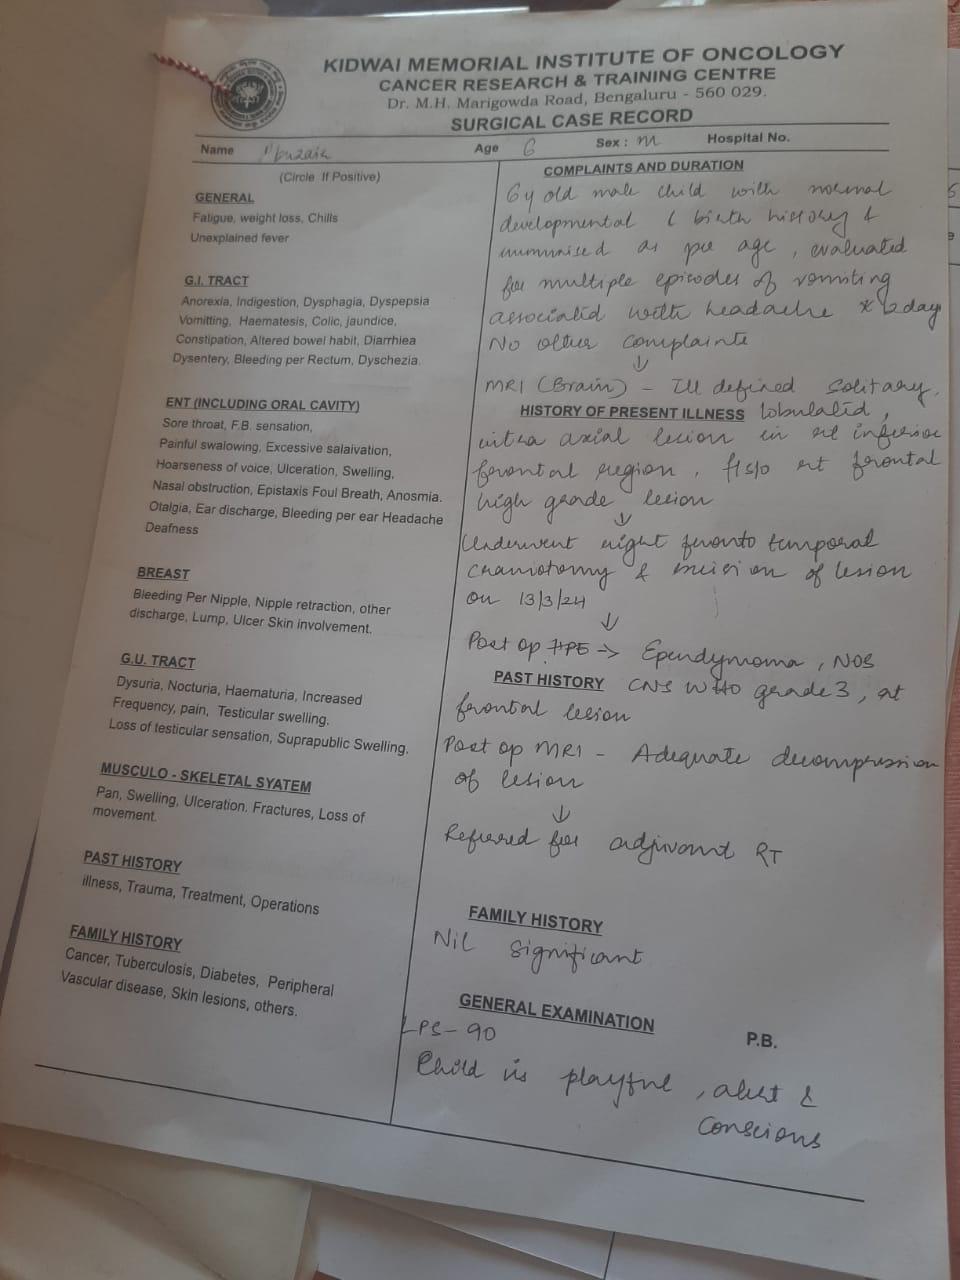 KIDWAI MEMORIAL INSTITUTE OF ONCOLOGY
CANCER RESEARCH & TRAINING CENTRE
Dr. M.H. Marigowda Road, Bengaluru - 560 029.
SURGICAL CASE RECORD
Name Age 6 Sex : M Hospital No.
(Circle If Positive)
GENERAL
Fatigue, weight loss, Chills
Unexplained fever
G.I. TRACT
Anorexia, Indigestion, Dysphagia, Dyspepsia
Vomitting, Haematesis, Colic, jaundice,
Constipation, Altered bowel habit, Diarrhiea
Dysentery, Bleeding per Rectum, Dyschezia.
ENT (INCLUDING ORAL CAVITY)
Sore throat, F.B. sensation,
Painful swalowing, Excessive salaivation,
Hoarseness of voice, Ulceration, Swelling,
Nasal obstruction, Epistaxis Foul Breath, Anosmia.
Otalgia, Ear discharge, Bleeding per ear Headache
Deafness
BREAST
Bleeding Per Nipple, Nipple retraction, other
discharge, Lump, Ulcer Skin involvement.
G.U. TRACT
Dysuria, Nocturia, Haematuria, Increased
Frequency, pain, Testicular swelling,
Loss of testicular sensation, Suprapublic Swelling,
MUSCULO - SKELETAL SYATEM
Pan, Swelling, Ulceration. Fractures, Loss of
movement.
PAST HISTORY
illness, Trauma, Treatment, Operations
FAMILY HISTORY
Cancer, Tuberculosis, Diabetes, Peripheral
Vascular disease, Skin lesions, others.
COMPLAINTS AND DURATION
6y old male child with normal
developmental & birth history &
immunised as per age, evaluated
for multiple episodes of vomiting
associated with headache × day
No other complaints
↓
MRI (Brain) - Ill defined solitary,
HISTORY OF PRESENT ILLNESS lobulated,
intra axial lesion in rt inferior
frontal region, f/s/o rt frontal
high grade lesion
↓
Underwent right fronto temporal
craniotomy & excision of lesion
on 13/3/24
↓
Post op HPE → Ependymoma, NOS
PAST HISTORY CNS WHO grade 3, rt
frontal lesion
Post op MRI - Adequate decompression
of lesion
↓
Referred for adjuvant RT
FAMILY HISTORY
Nil significant
GENERAL EXAMINATION
P.B.
LPS-90
Child is playful, alert &
conscious